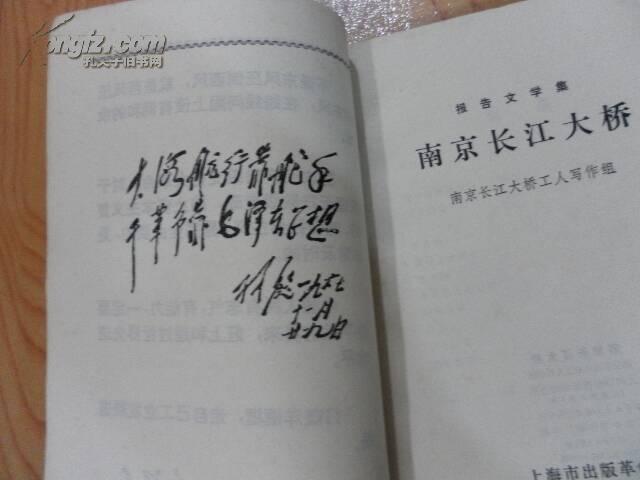 Kongfz.com
孔夫子旧书网
大海航行靠舵手
干革命靠毛泽东思想
林彪 一九六七
十一月
廿九日
报告文学集
南京长江大桥
南京长江大桥工人写作组
上海市出版革